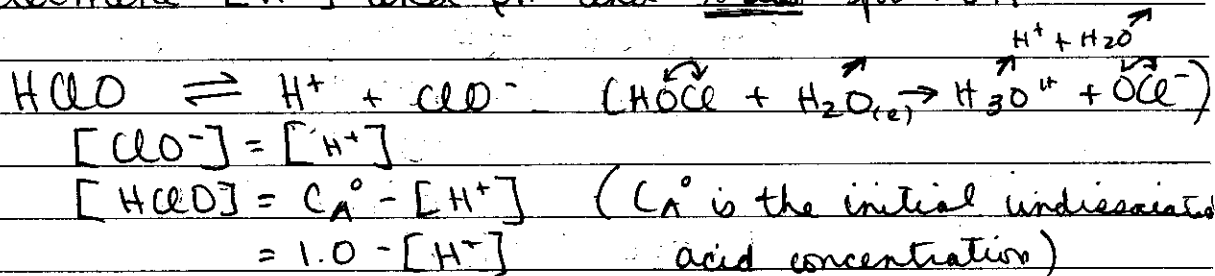 [H⁺] and pH and
H⁺ + H2O
HClO ⇌ H⁺ + ClO⁻ (HOCl + H₂O(l) → H₃O⁺ + OCl⁻)
[ClO⁻] = [H⁺]
[HClO] = CA° - [H⁺] (CA° is the initial undissociated
= 1.0 - [H⁺] acid concentration)